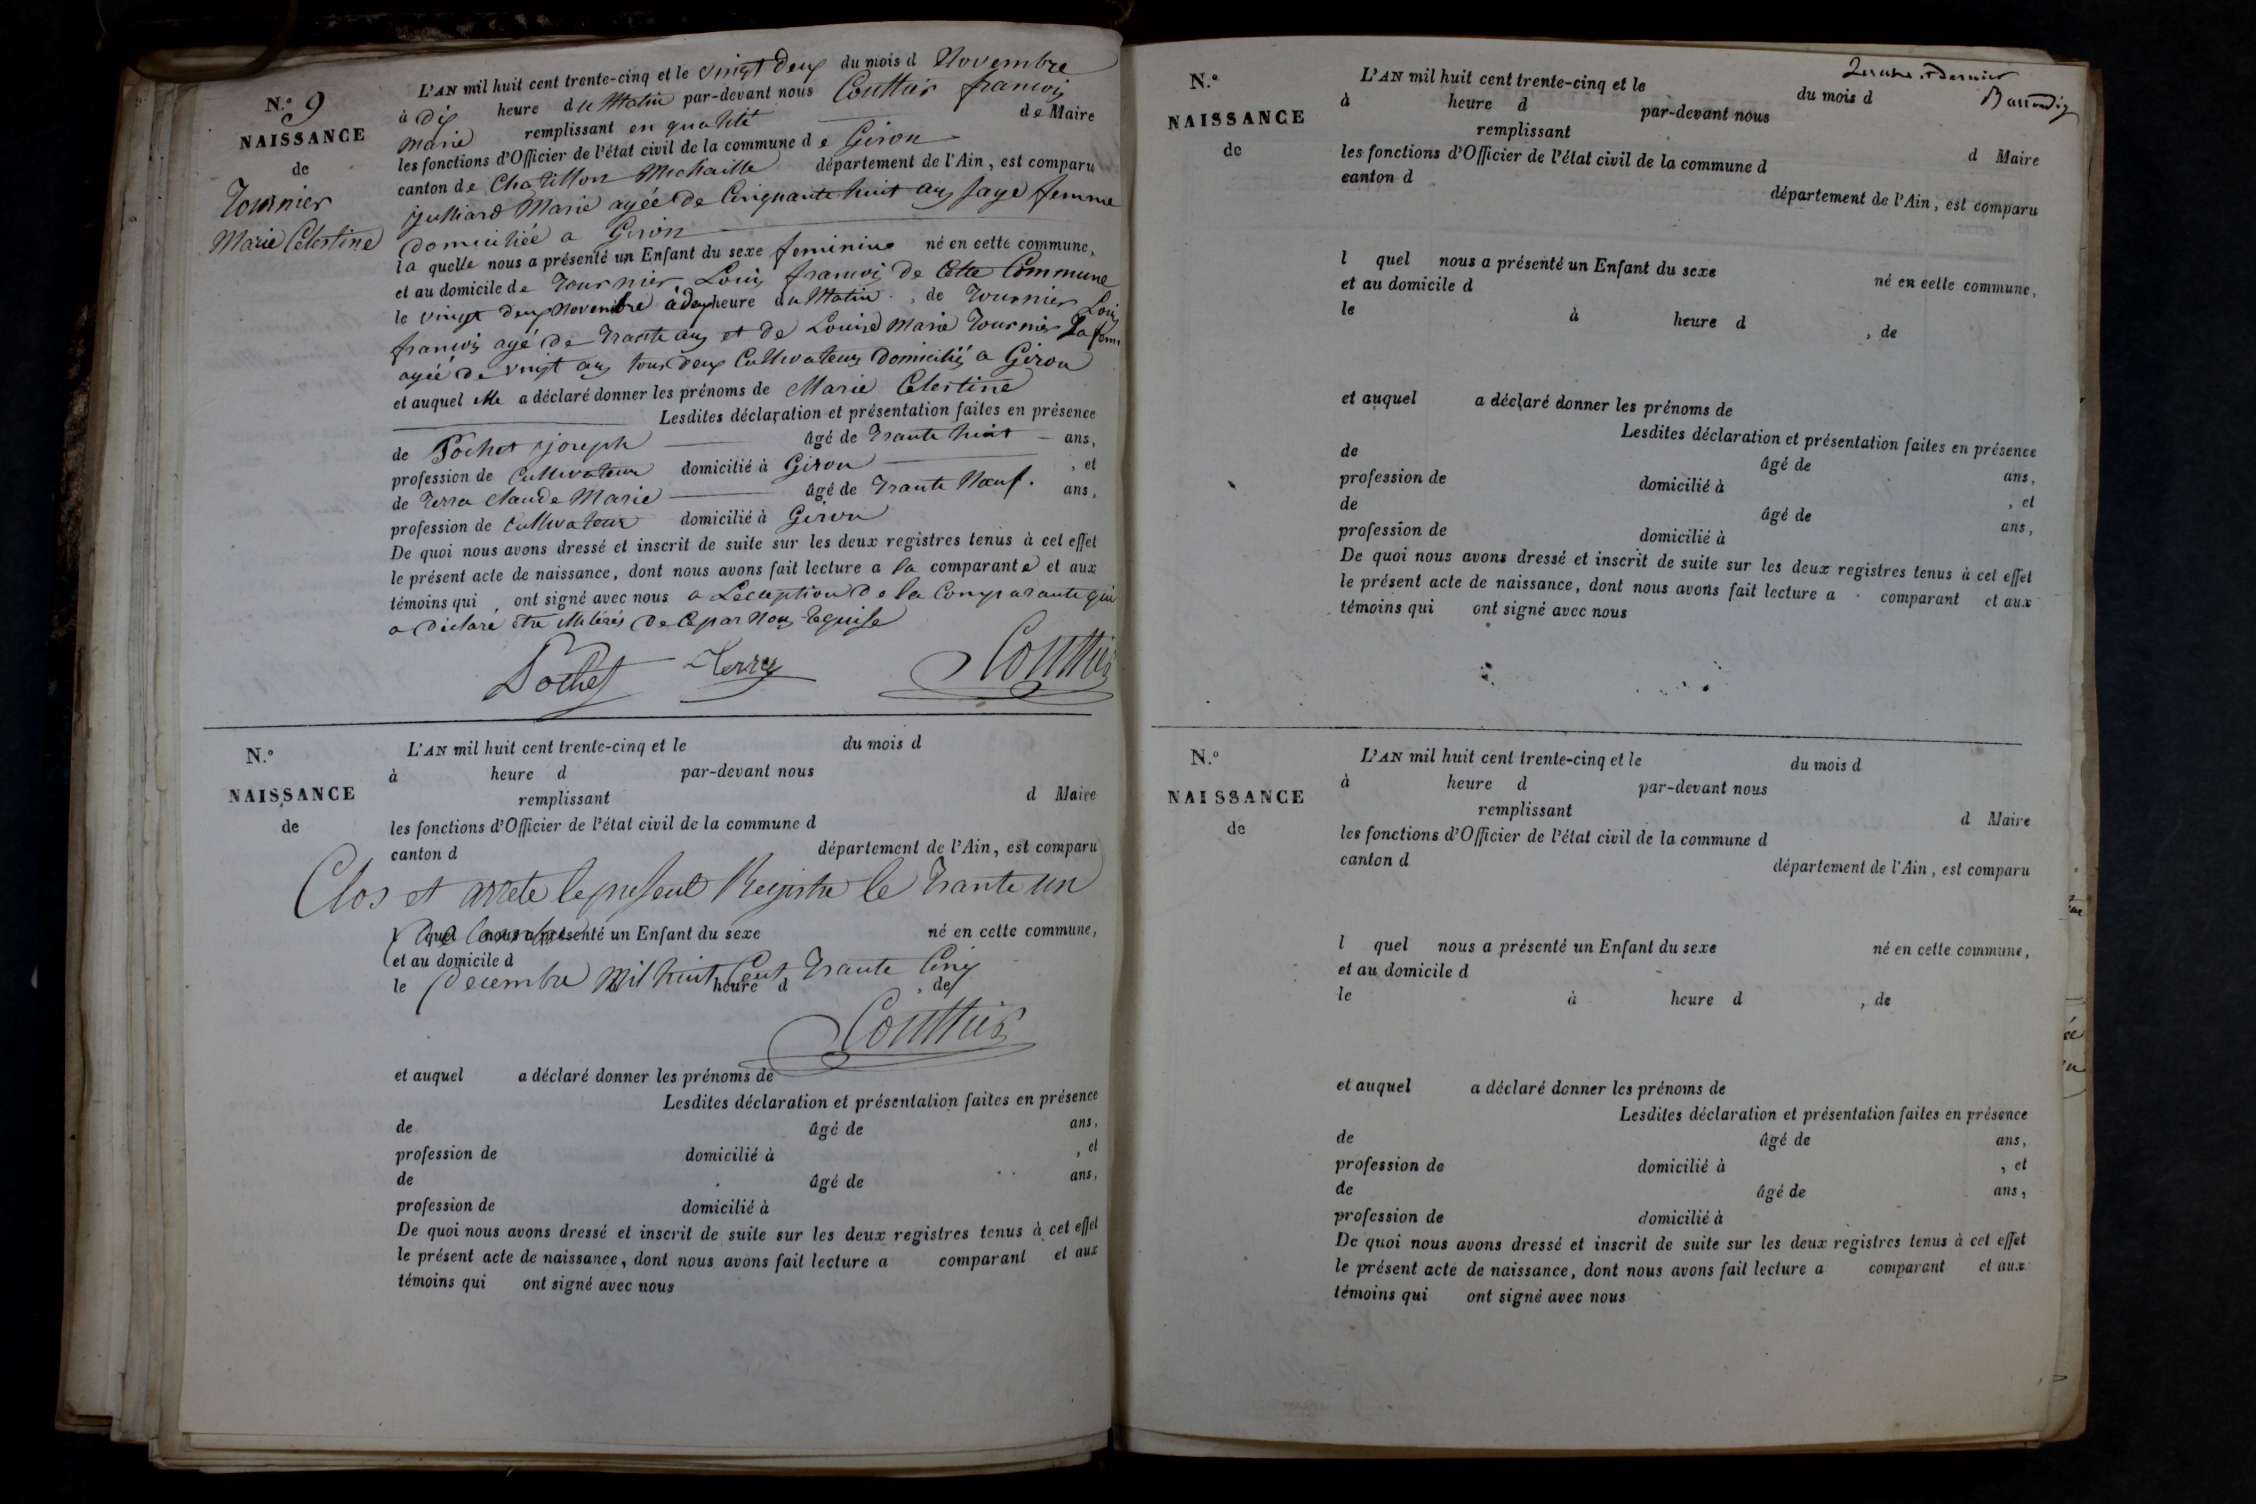 N.º 9
NAISSANCE
de
Tournier
Marie Celestine
L'AN mil huit cent trente-cinq et le vingt deux du mois d Novembre
à dix heure du Matin par-devant nous Couttier francois
marie remplissant en qualité de Maire
les fonctions d'Officier de l'état civil de la commune de Giron
canton de Chatillon Michaille département de l'Ain, est comparu
julliard Marie agée de Cinquante huit ans sage femme
domiciliée a Giron
la quelle nous a présenté un Enfant du sexe feminine né en cette commune,
et au domicile de Tournier Louis francois de Cette Commune
le vingt deux Novembre à deux heure du Matin, de Tournier Louis
francois agé de trante ans et de Louise Marie Tournier Sa fem
agée de vingt ans tous deux Cultivateurs domiciliés a Giron
et auquel elle a déclaré donner les prénoms de Marie Celestine
Lesdites déclaration et présentation faites en présence
de Pochet joseph âgé de trante huit ans,
profession de Cultivateur domicilié à Giron , et
de Terra claude Marie âgé de trante Neuf. ans,
profession de Cultivateur domicilié à Giron
De quoi nous avons dressé et inscrit de suite sur les deux registres tenus à cet effet
le présent acte de naissance, dont nous avons fait lecture a la comparante et aux
témoins qui , ont signé avec nous a Leception de la Comparante qui
a déclaré être illitérés de ce par Nous Requise
Pochet Terra Couttier
N.º
NAISSANCE
de
L'AN mil huit cent trente-cinq et le du mois d
à heure d par-devant nous
remplissant d Maire
les fonctions d'Officier de l'état civil de la commune d
canton d département de l'Ain, est comparu
Clos et arrete le present Registre le trante un
l quel nous a présenté un Enfant du sexe né en cette commune,
et au domicile d
decembre mil huit Cent trante Cinq
le à heure d , de
Couttier
et auquel a déclaré donner les prénoms de
Lesdites déclaration et présentation faites en présence
de âgé de ans,
profession de domicilié à , et
de âgé de ans,
profession de domicilié à
De quoi nous avons dressé et inscrit de suite sur les deux registres tenus à cet effet
le présent acte de naissance, dont nous avons fait lecture a comparant et aux
témoins qui ont signé avec nous
et dernier
N.º
NAISSANCE
de
L'AN mil huit cent trente-cinq et le du mois d
à heure d par-devant nous
remplissant d Maire
les fonctions d'Officier de l'état civil de la commune d
canton d département de l'Ain, est comparu
l quel nous a présenté un Enfant du sexe né en cette commune,
et au domicile d
le à heure d , de
et auquel a déclaré donner les prénoms de
Lesdites déclaration et présentation faites en présence
de âgé de ans,
profession de domicilié à , et
de âgé de ans,
profession de domicilié à
De quoi nous avons dressé et inscrit de suite sur les deux registres tenus à cet effet
le présent acte de naissance, dont nous avons fait lecture a comparant et aux
témoins qui ont signé avec nous
N.º
NAISSANCE
de
L'AN mil huit cent trente-cinq et le du mois d
à heure d par-devant nous
remplissant d Maire
les fonctions d'Officier de l'état civil de la commune d
canton d département de l'Ain, est comparu
l quel nous a présenté un Enfant du sexe né en cette commune,
et au domicile d
le à heure d , de
et auquel a déclaré donner les prénoms de
Lesdites déclaration et présentation faites en présence
de âgé de ans,
profession de domicilié à , et
de âgé de ans,
profession de domicilié à
De quoi nous avons dressé et inscrit de suite sur les deux registres tenus à cet effet
le présent acte de naissance, dont nous avons fait lecture a comparant et aux
témoins qui ont signé avec nous